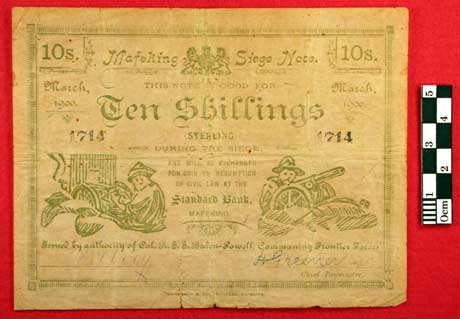 10s. Mafeking Siege Note. 10s.
March, 1900. THIS NOTE IS GOOD FOR March, 1900.
Ten Shillings
1714 (STERLING) 1714
DURING THE SIEGE
AND WILL BE EXCHANGED
FOR COIN ON RESUMPTION
OF CIVIL LAW AT THE
Standard Bank,
MAFEKING
Issued by authority of Col. R. S. S. Baden-Powell, Commanding Frontier Forces
H Greener
Chief Paymaster.
0cm 1 2 3 4 5